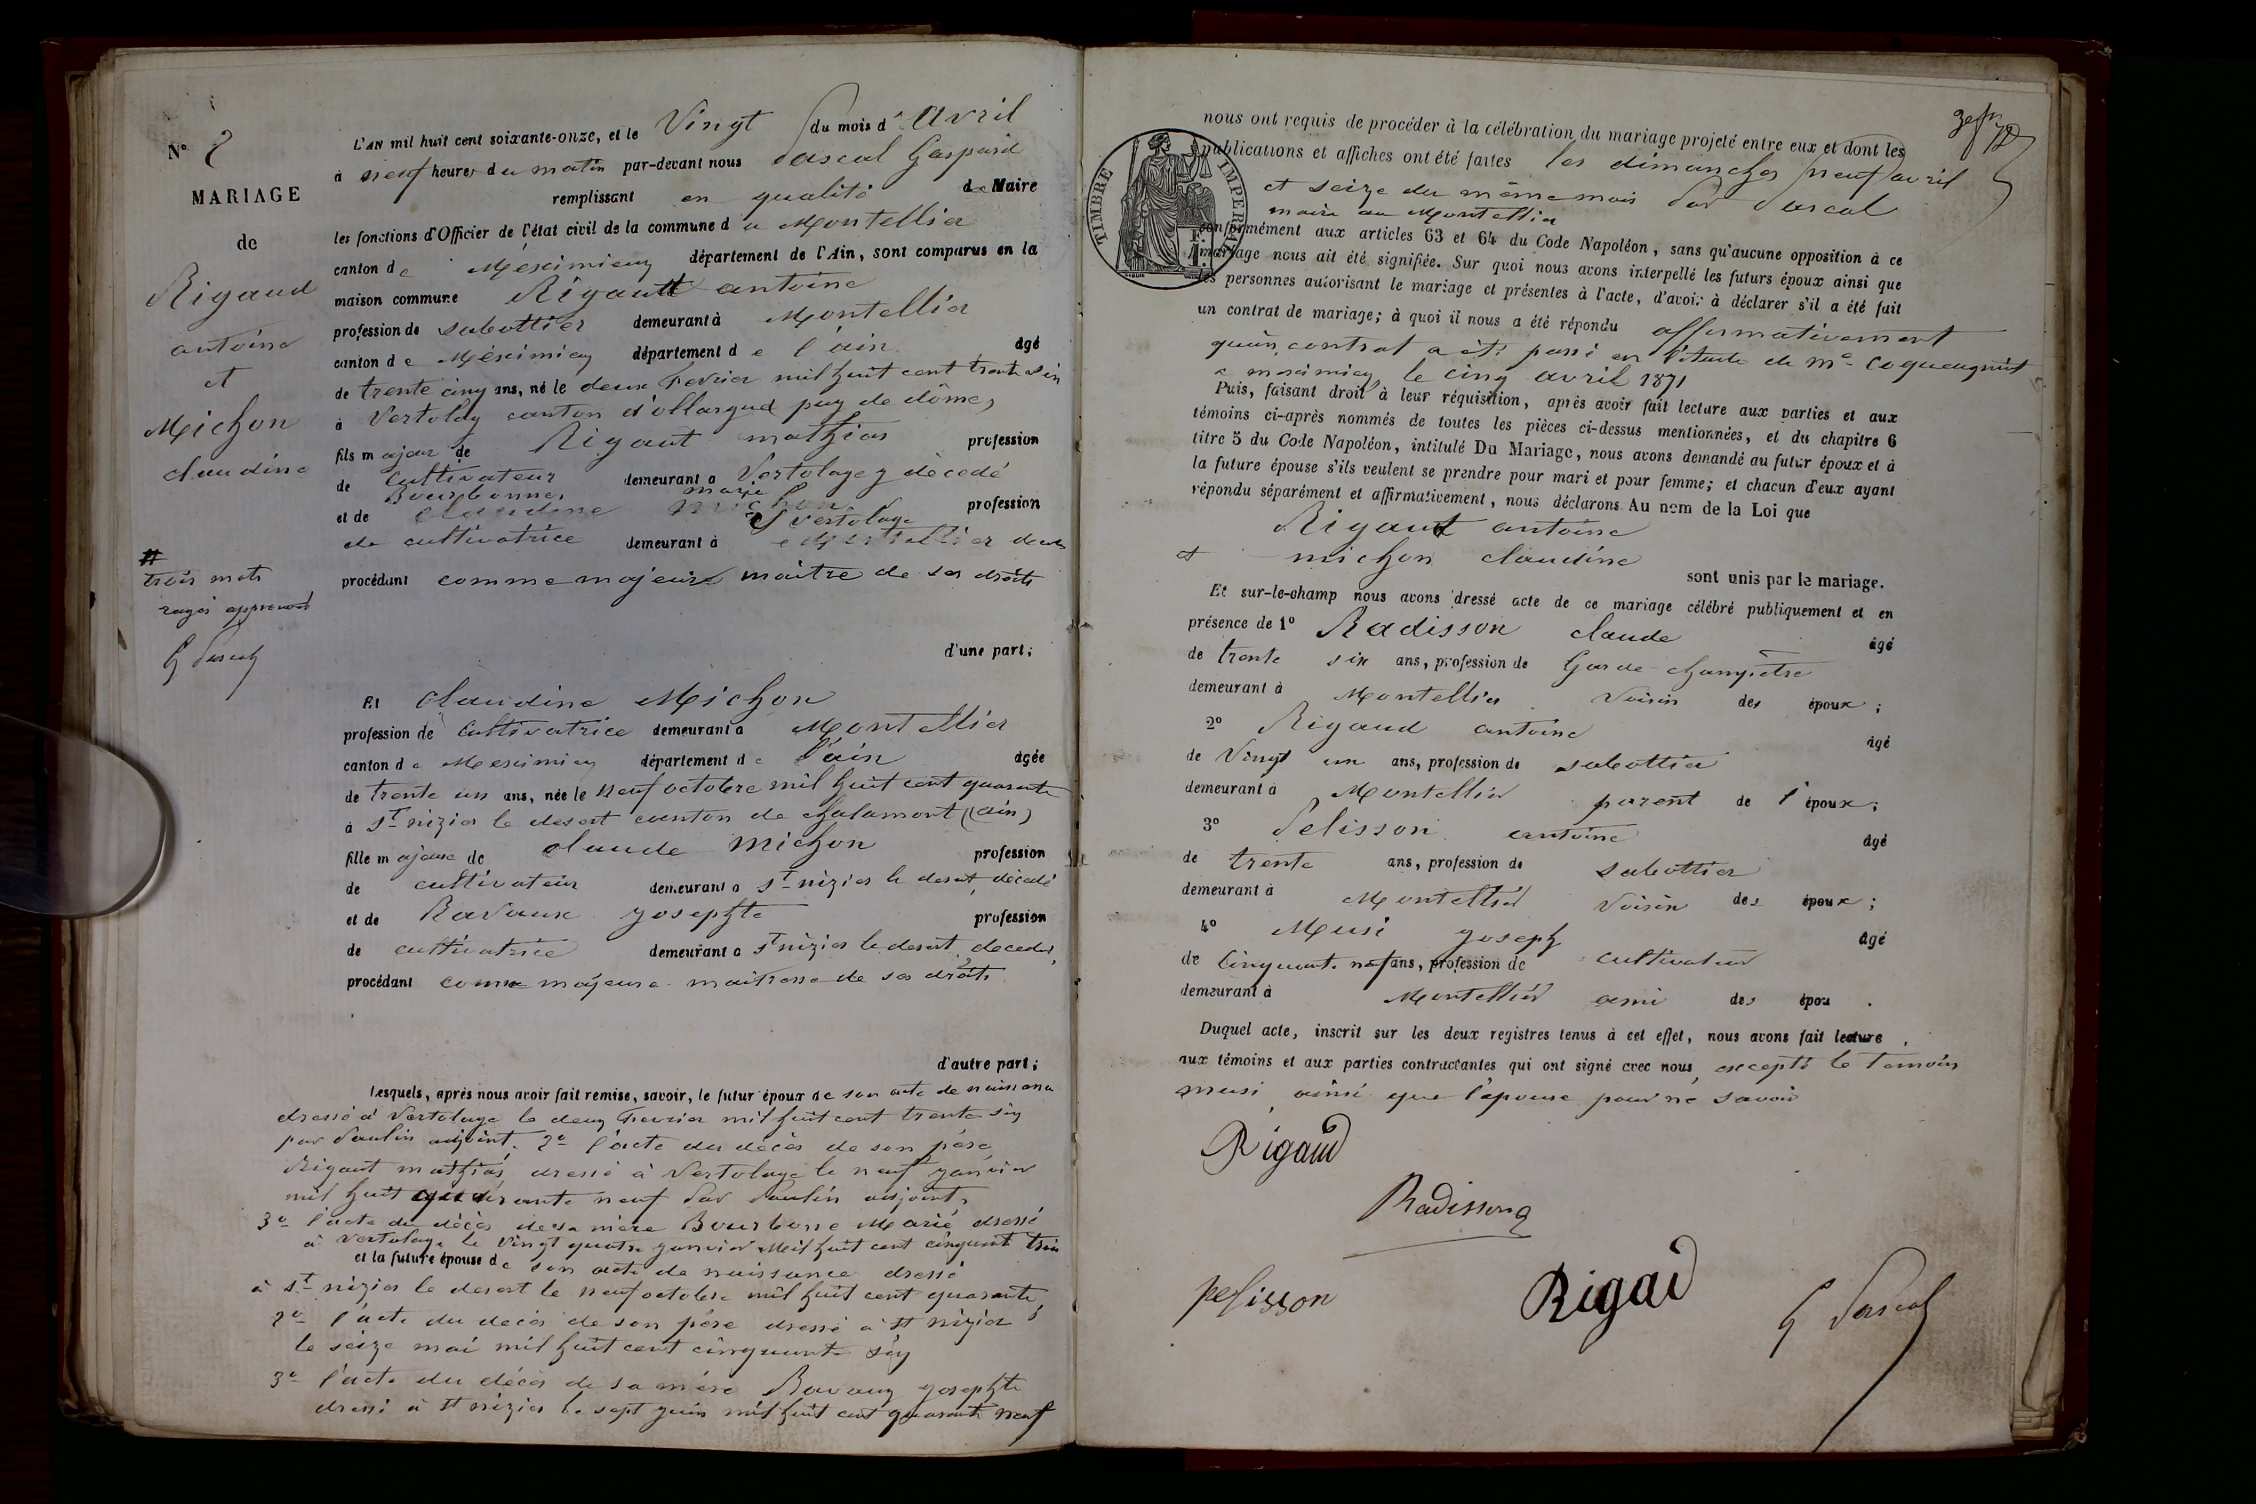 N° 2
MARIAGE
de
Rigaud
antoine
et
Michon
claudine
#
trois mots
rayés approuvés
G Pascal
L'AN mil huit cent soixante-onze, et le Vingt du mois d'Avril
à neuf heures du matin par-devant nous Pascal Gaspard
remplissant en qualité de Maire
les fonctions d'Officier de l'état civil de la commune du Montellier
canton de Méximieux département de l'Ain, sont comparus en la
maison commune Rigautt antoine
profession de sabottier demeurant à Montellier
canton de Méximieux département de l'ain âgé
de trente cinq ans, né le deux Fevrier mil huit cent trente six
à Vertolay canton d'ollargues puy de dôme,
fils majeur de Rigaut mathias profession
de cultivateur demeurant a Vertolaye y décedé
Bourbonne marie
et de claudine michon profession
a vertolaye
de cultivatrice demeurant à
procédant comme majeur maitre de ses droits
d'une part;
Et claudine Michon
profession de cultivatrice demeurant a Montellier
canton de Meximieu département de l'ain âgée
de trente un ans, née le neuf octobre mil huit cent quarante
à St nizier le desert canton de chalamont (ain)
fille majeure de claude michon profession
de cultivateur demeurant a St nizier le desert, décédé
et de Ravaux yosephte profession
de cultivatrice demeurant a St nizier le desert decedee,
procédant comme majeure maitresse de ses droits
d'autre part;
Lesquels, après nous avoir fait remise, savoir, le futur époux de son acte de naissance
dressé à Vertolaye le deux Fevrier mil huit cent trente six
par Paulin adjoint. 2° l'acte du décès de son père
Rigaut mathias, dressé à Vertolaye le neuf janvier
mil huit quarante neuf Par Paulin adjoint,
3° l'acte du décès de sa mère Bourbonne Marie dressé
à Vertolaye le Vingt quatre janvier Mil huit cent cinquante trois
et la future épouse de son acte de naissance dressé
à St nizier le desert le neuf octobre mil huit cent quarante,
2° l'acte du décès de son père dressé à St nizier
le seize mai mil huit cent cinquante six
3° l'acte du décès de sa mère Ravaux yosephte
dressé à St nizier le sept juin mil huit cent quarante neuf
TIMBRE IMPERIAL
1 F.
nous ont requis de procéder à la célébration du mariage projeté entre eux et dont les
publications et affiches ont été faites les dimanches neuf avril
et seize du même mois Par Pascal
maire au Montellier
conformément aux articles 63 et 64 du Code Napoléon, sans qu'aucune opposition à ce
mariage nous ait été signifiée. Sur quoi nous avons interpellé les futurs époux ainsi que
les personnes autorisant le mariage et présentes à l'acte, d'avoir à déclarer s'il a été fait
un contrat de mariage; à quoi il nous a été répondu affirmativement
qu'un contrat a été passé en l'étude de Me Coqueugniot
a meximieu le cinq avril 1871
Puis, faisant droit à leur réquisition, après avoir fait lecture aux parties et aux
témoins ci-après nommés de toutes les pièces ci-dessus mentionnées, et du chapitre 6
titre 5 du Code Napoléon, intitulé Du Mariage, nous avons demandé au futur époux et à
la future épouse s'ils veulent se prendre pour mari et pour femme; et chacun d'eux ayant
répondu séparément et affirmativement, nous déclarons Au nom de la Loi que
Rigaut antoine
et michon claudine
sont unis par le mariage.
Et sur-le-champ nous avons dressé acte de ce mariage célébré publiquement et en
présence de 1° Radisson claude âgé
de trente six ans, profession de Garde-champêtre
demeurant à Montellier Voisin des époux;
2° Rigaud antoine âgé
de Vingt un ans, profession de sabottier
demeurant à Montellier parent de l'époux;
3° Pelisson antoine âgé
de trente ans, profession de sabottier
demeurant à Montellier Voisin des époux;
4° Musi yoseph âgé
de Cinquante neuf ans, profession de cultivateur
demeurant à Montellier ami des épou.
Duquel acte, inscrit sur les deux registres tenus à cet effet, nous avons fait lecture
aux témoins et aux parties contractantes qui ont signé avec nous, excepté le temoin
musi, ainsi que l'epouse pour ne savoir
Rigaud
Radisson
pelisson
Rigau
G Pascal